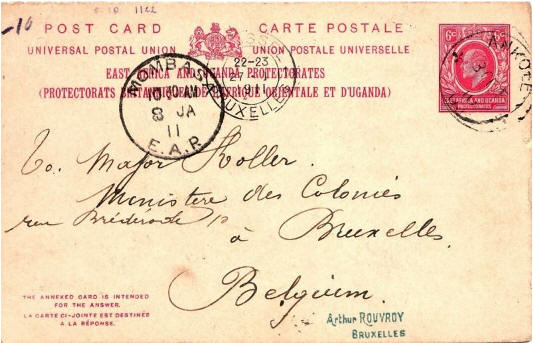 -10
1122
POST CARD CARTE POSTALE
UNIVERSAL POSTAL UNION UNION POSTALE UNIVERSELLE
EAST AFRICA AND UGANDA PROTECTORATES
(PROTECTORATS BRITANNIQUES DE L'AFRIQUE ORIENTALE ET D'UGANDA)
6c 6c
EAST AFRICA AND UGANDA
PROTECTORATES
MOMBASA
10 30 AM
8 JA
11
E.A.P.
22-23
27
1911
BRUXELLES
To. Major Holler.
Ministère des Colonies
rue Bréderode
à Bruxelles.
Belgium.
THE ANNEXED CARD IS INTENDED
FOR THE ANSWER.
LA CARTE CI-JOINTE EST DESTINÉE
A LA RÉPONSE.
Arthur ROUVROY
BRUXELLES